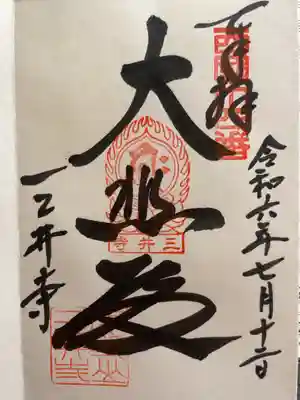 奉拝
令和六年七月十二日
大悲殿
三井寺
三井寺